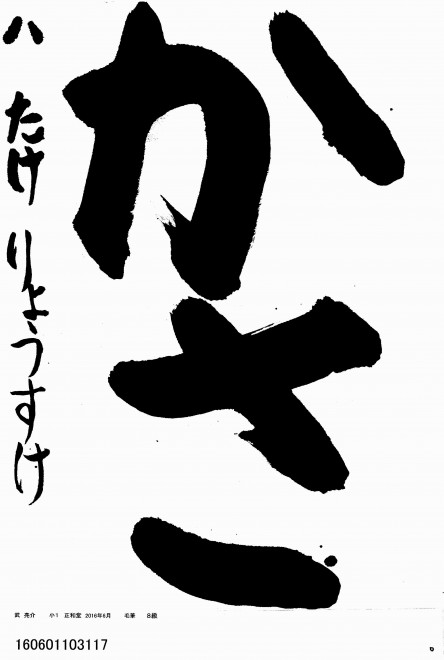 かさ
八 たけ りょうすけ
武 亮介 小1 正和堂 2016年6月 毛筆 8級
160601103117